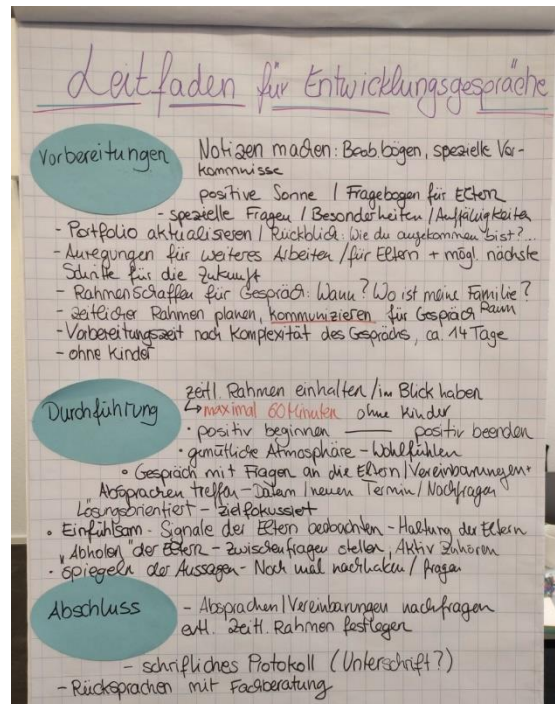 Leitfaden für Entwicklungsgespräche
Vorbereitungen
Notizen machen: Beob.bögen, spezielle Vor-
kommnisse
positive Sonne / Fragebogen für Eltern
- spezielle Fragen / Besonderheiten / Auffälligkeiten
- Portfolio aktualisieren / Rückblick: Wie du angekommen bist?...
- Anregungen für weiteres Arbeiten / für Eltern + mögl. nächste
Schritte für die Zukunft
- Rahmen schaffen für Gespräch: Wann? Wo ist meine Familie?
- zeitlicher Rahmen planen, kommunizieren für Gespräch Raum
- Vorbereitungszeit nach Komplexität des Gesprächs, ca. 14 Tage
- ohne Kinder
Durchführung
zeitl. Rahmen einhalten / im Blick haben
↳ maximal 60 Minuten ohne Kinder
• positiv beginnen — positiv beenden
• gemütliche Atmosphäre - Wohlfühlen
• Gespräch mit Fragen an die Eltern / Vereinbarungen +
Absprachen treffen - Datum / neuen Termin / Nachfragen
Lösungsorientiert - zielfokussiert
• Einfühlsam - Signale der Eltern beobachten - Haltung der Eltern
„Abholen" der Eltern - Zwischenfragen stellen, Aktiv Zuhören
• Spiegeln der Aussagen - Noch mal nachhaken / fragen
Abschluss
- Absprachen / Vereinbarungen nachfragen
evtl. zeitl. Rahmen festlegen
- schrifliches Protokoll (Unterschrift?)
- Rücksprachen mit Fachberatung